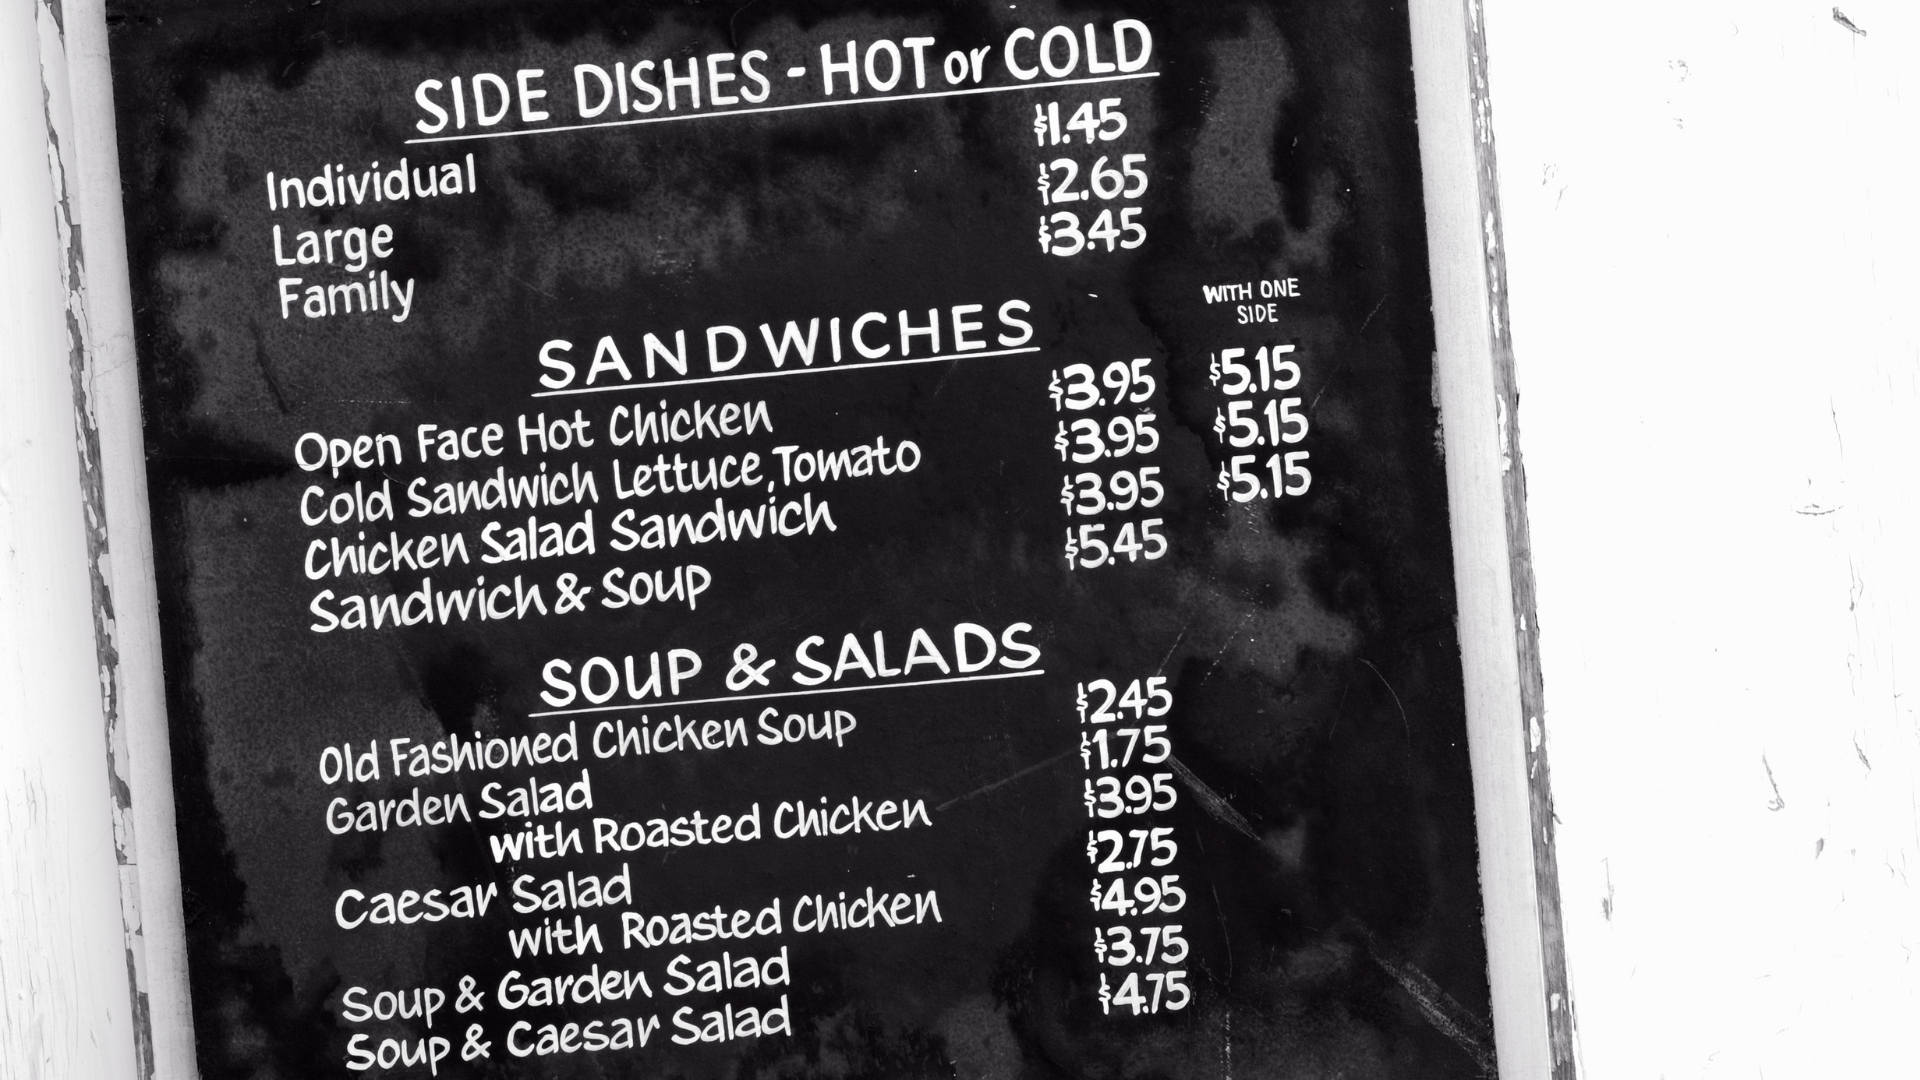 SIDE DISHES - HOT or COLD
Individual $1.45
Large $2.65
Family $3.45
WITH ONE
SIDE
SANDWICHES
Open Face Hot Chicken $3.95 $5.15
Cold Sandwich Lettuce, Tomato $3.95 $5.15
Chicken Salad Sandwich $3.95 $5.15
Sandwich & Soup $5.45
SOUP & SALADS
Old Fashioned Chicken Soup $2.45
Garden Salad $1.75
with Roasted Chicken $3.95
Caesar Salad $2.75
with Roasted Chicken $4.95
Soup & Garden Salad $3.75
Soup & Caesar Salad $4.75